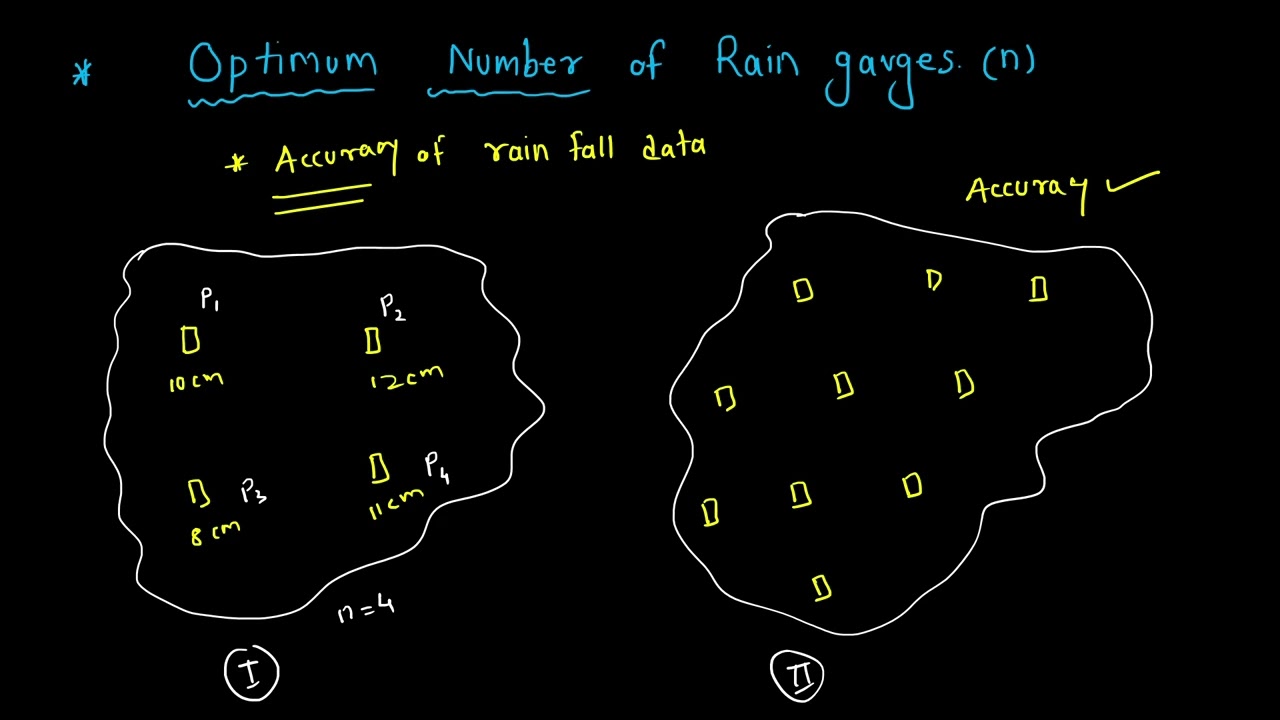 * Optimum Number of Rain gauges. (n)
* Accuracy of rain fall data
Accuray ✓
P1
P2
10 cm
12 cm
P4
P3
11 cm
8 cm
n = 4
I
II